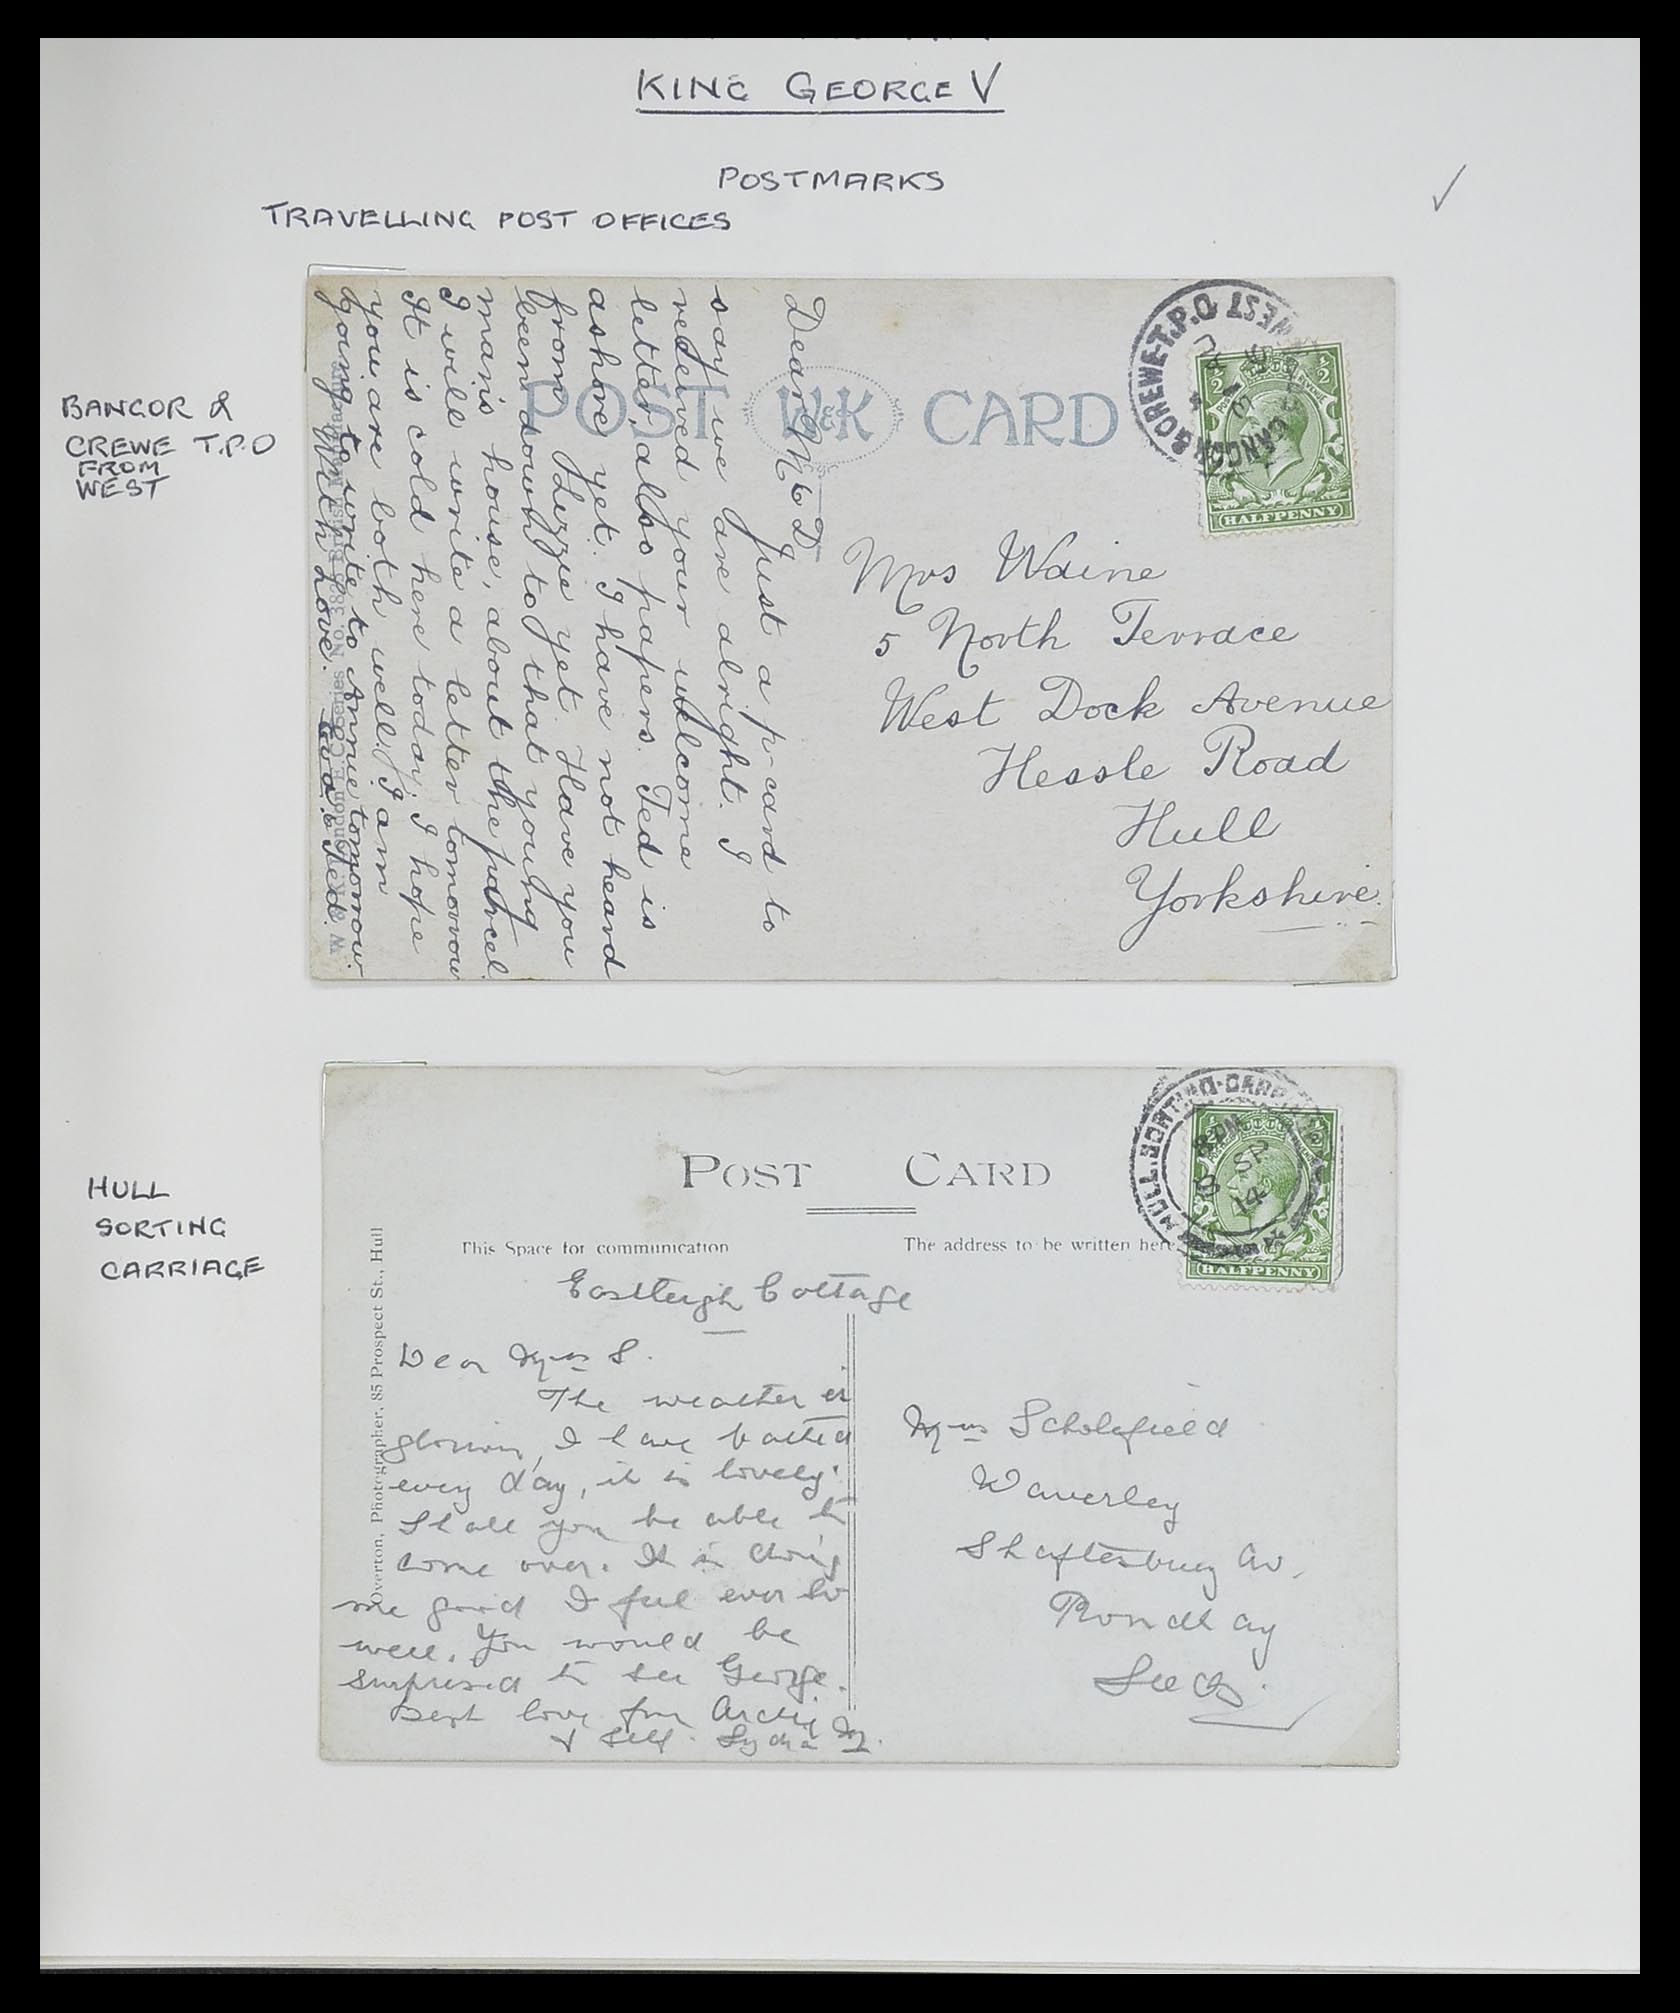 KING GEORGE V
POSTMARKS
TRAVELLING POST OFFICES
BANGOR &
CREWE T.P.O
FROM
WEST
POST W&K CARD
& CREWE-T.P.O WEST
HALFPENNY
Just a p-card to
say we are alright. I
received your welcome
letter, also papers. Ted is
ashore yet. I have not heard
from Lizzie yet. Have you
been down to that young
man's house, about the parcel.
I will write a letter tomorrow
It is cold here today; I hope
you are both well. I am
going to write to Annie tomorrow.
With Love.
Mrs Waine
5 North Terrace
West Dock Avenue
Hessle Road
Hull
Yorkshire.
HULL
SORTING
CARRIAGE
POST CARD
This Space for communication
The address to be written here
HULL.SORTING-CARR
8 PM
8 SP
14
HALFPENNY
Overton, Photographer, 85 Prospect St., Hull
Eastleigh Cottage
Dear Mrs S.
The weather is
glorious, I have bathed
every day, it is lovely.
Shall you be able to
come over. It is doing
me good I feel ever so
well. You would be
surprised to see George.
Best love from Archie
& Self. Lydia M.
Mrs Scholefield
Waverley
Shaftesbury Av.
Roundhay
Leeds.